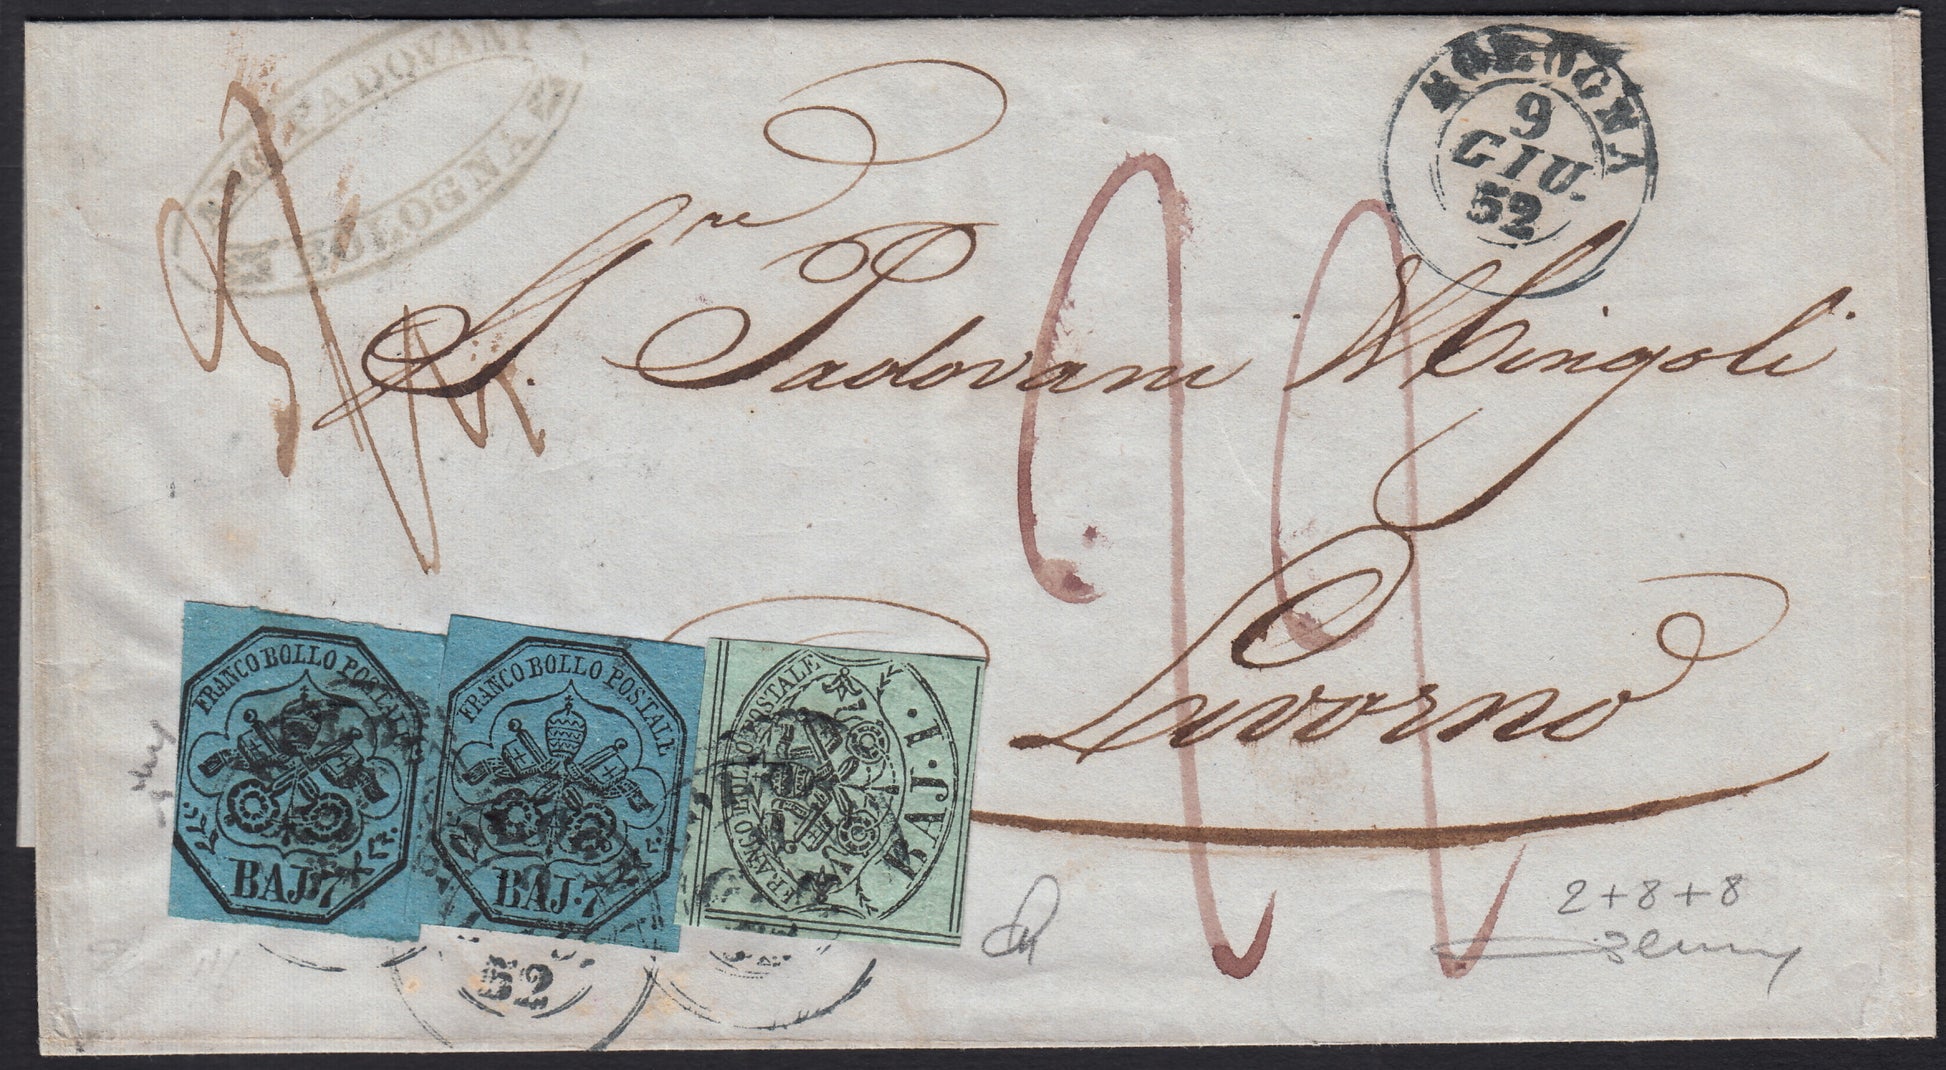 PADOVANI
BOLOGNA
BOLOGNA
9
GIU.
52
S.re
S. Padovani Mingoli
Livorno
FRANCO BOLLO POSTALE
BAJ. 7
FRANCO BOLLO POSTALE
BAJ. 7
FRANCO BOLLO POSTALE
BAJ. 1
52
2+8+8